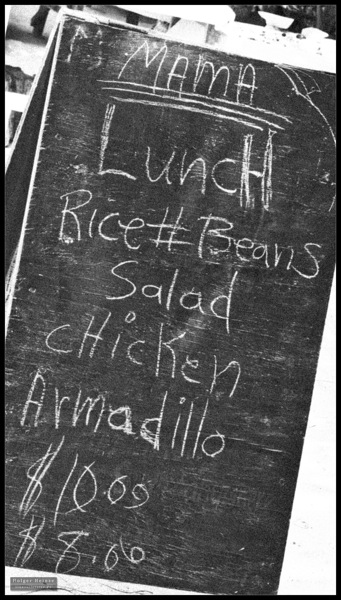 MAMA
LuncH
Rice # Beans
Salad
cHicKen
Armadillo
$10.00
$8.00